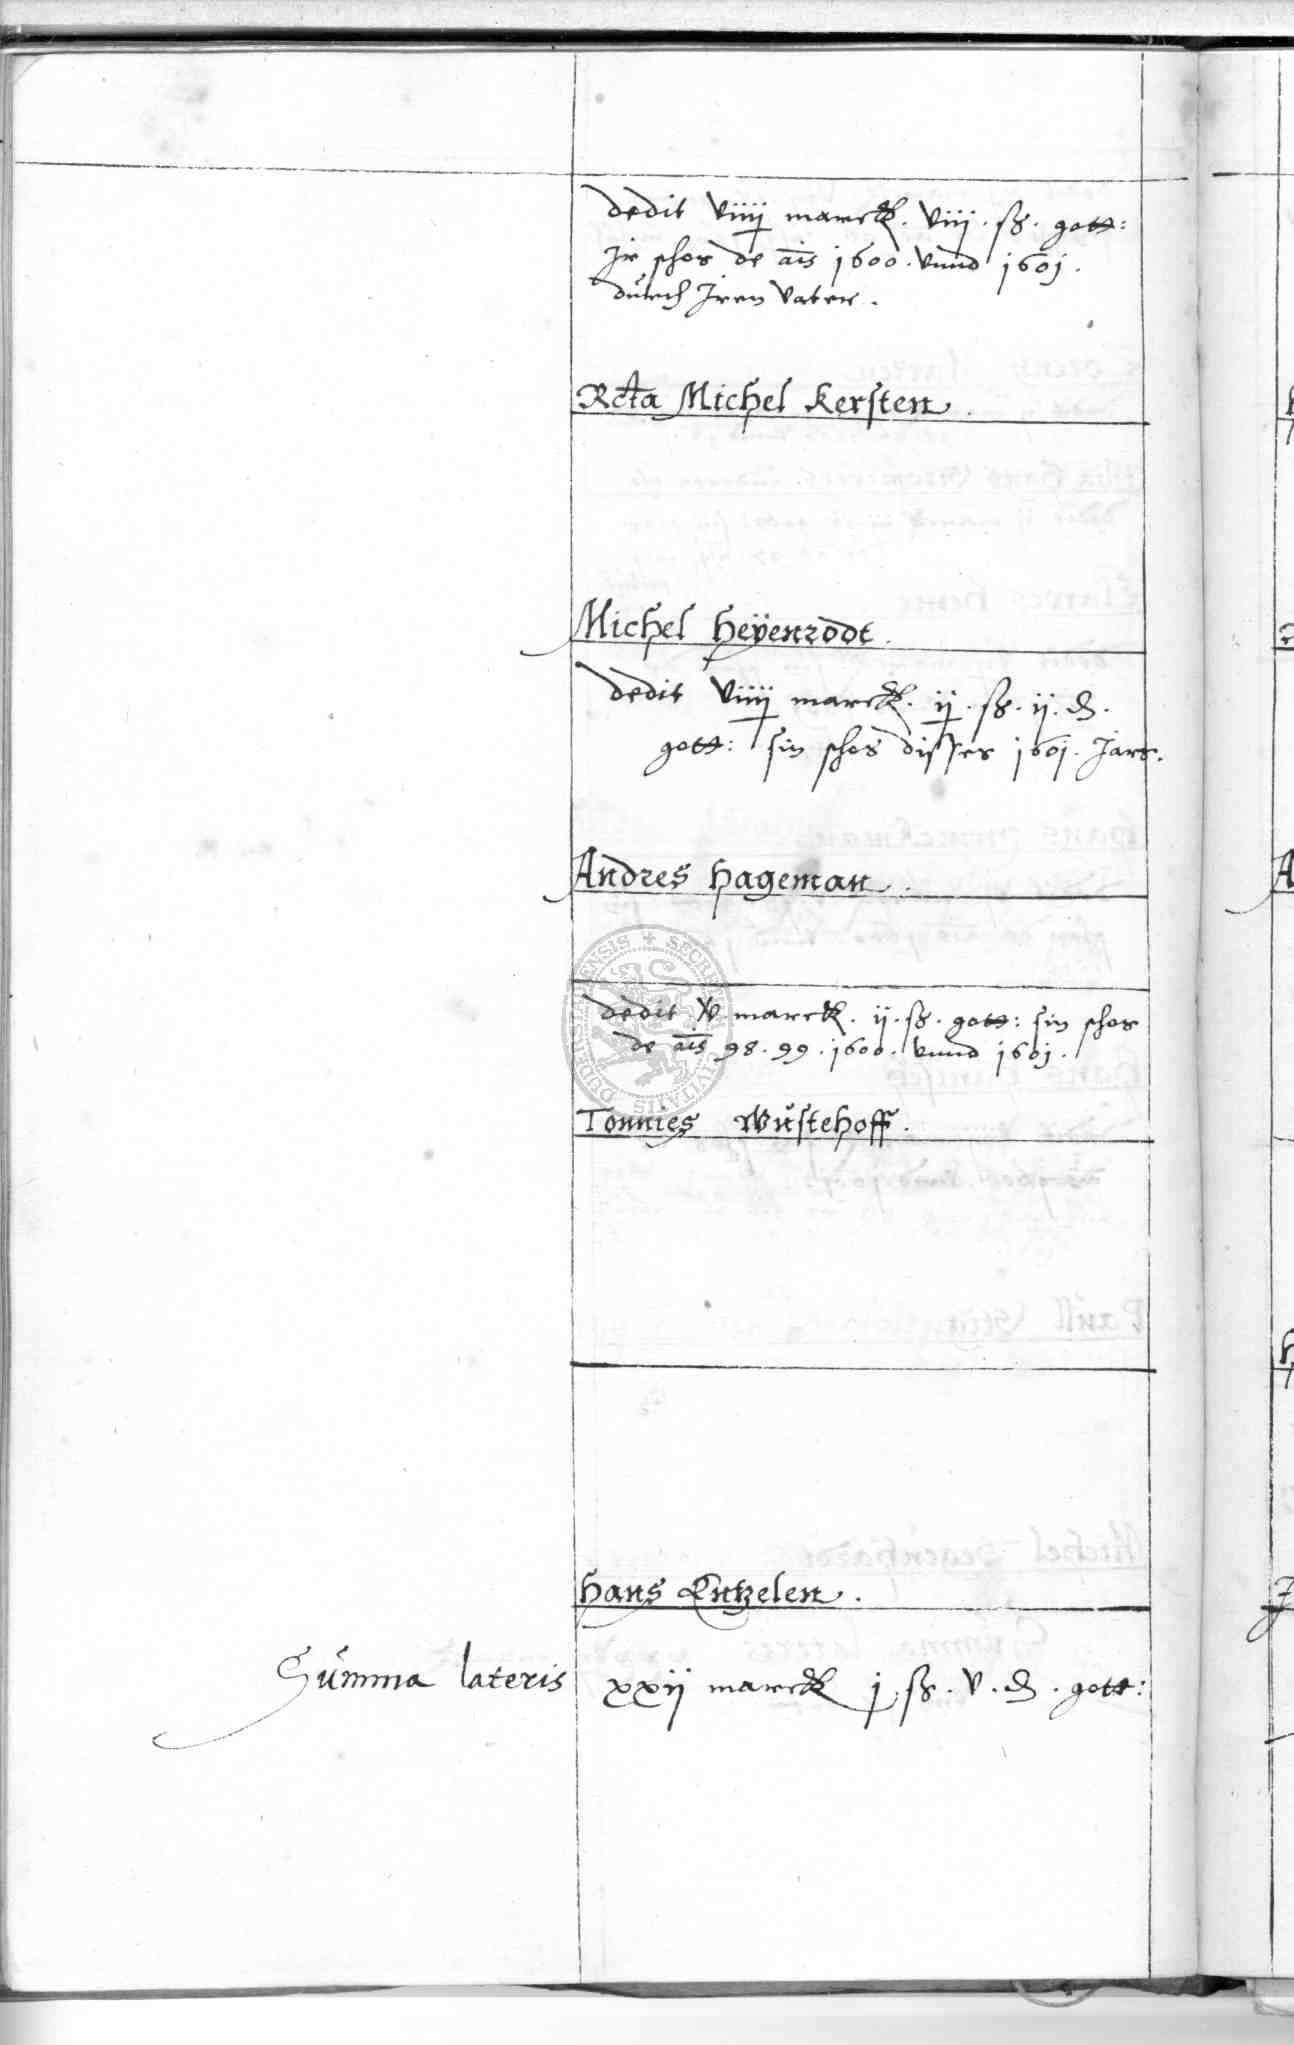 dedit viiij marck. viij. ß. gott:
Jr schos de ais 1600. vnnd 1601.
durch Jren vater.
Rcta Michel Kersten.
Michel Heÿenrodt.
dedit viiij marck. ij. ß. ij. d.
gott: sin schos disses 1601. Jars.
Andres Hageman.
dedit v marck. ij. ß. gott: sin schos
de ais 98. 99. 1600. vnnd 1601.
Tonnies Wüstehoff.
Hans Entzelen.
Summa lateris xxij marck j. ß. v. d. gott: